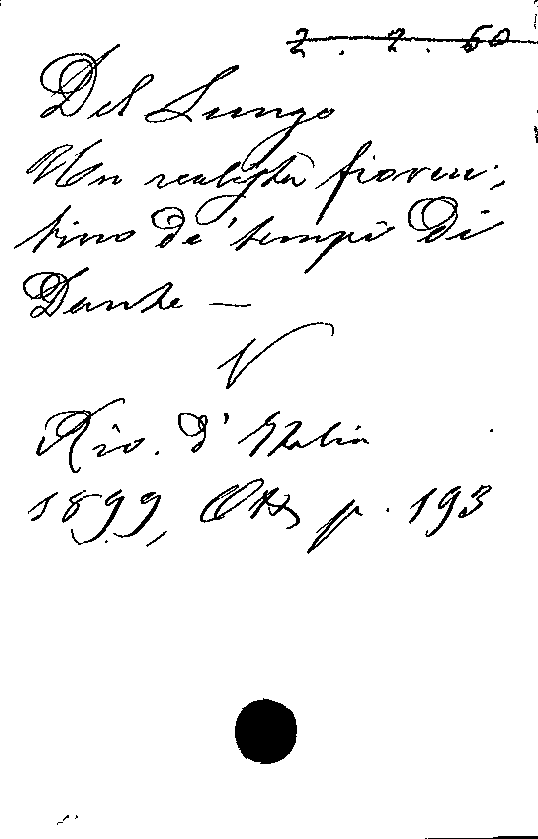 2. 2. 60
Del Lungo
Un realista fioren-
tino de' tempi di
Dante —
V
Riv. d'Italia
1899, Ott p. 193